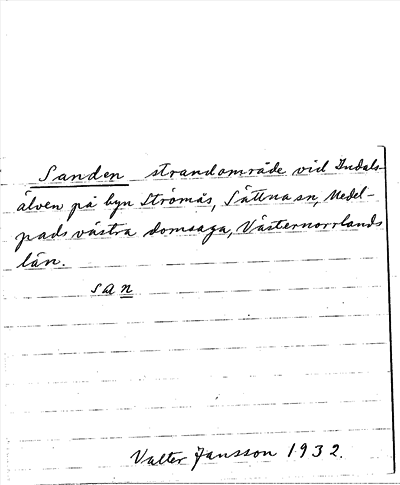 Sanden strandområde vid Indals-
älven på byn Strömås, Sättna sn, Medel-
pads västra domsaga, Västernorrlands
län.
san
Valter Jansson 1932.